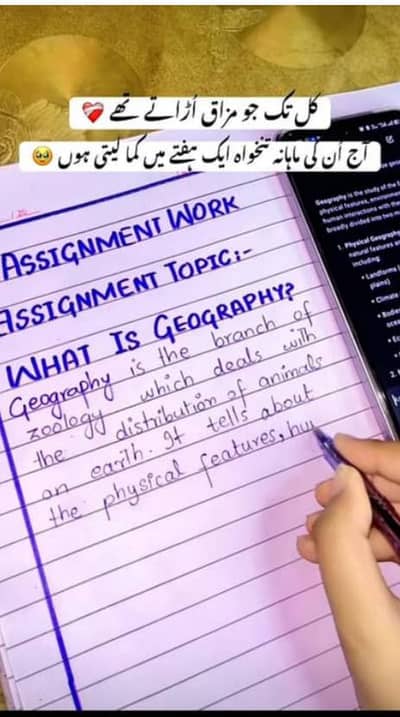 کل تک جو مزاق اُڑاتے تھے ❤️‍🩹
آج اُن کی ماہانہ تنخواہ ایک ہفتے میں کما لیتی ہوں 🥹
ASSIGNMENT WORK
ASSIGNMENT TOPIC:-
WHAT IS GEOGRAPHY?
Geography is the branch of
zoology which deals with
the distribution of animals
on earth. It tells about
the physical features, hu
Geography is the study of the
physical features, environmen
human interactions with the
broadly divided into
1. Physical Geography
natural features
including:
• Landforms
plains)
• Climate